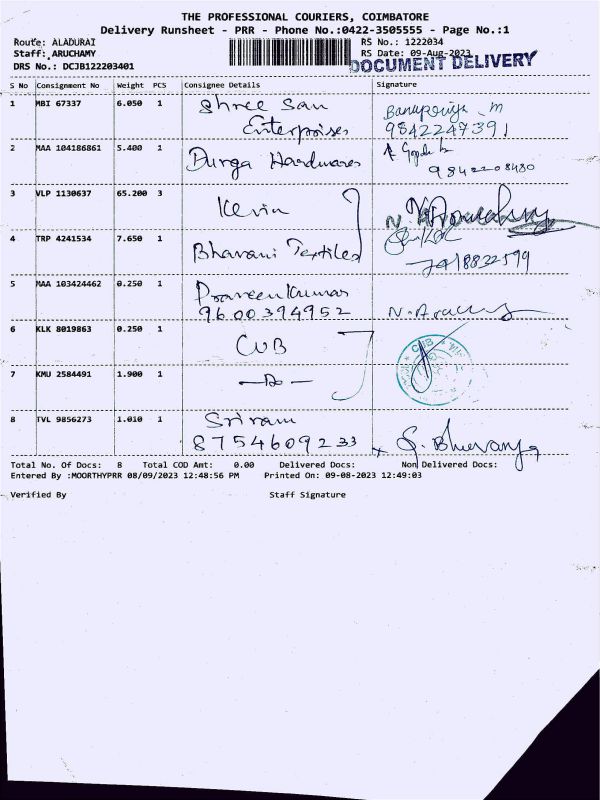 THE PROFESSIONAL COURIERS, COIMBATORE
Delivery Runsheet - PRR - Phone No.:0422-3505555 - Page No.:1
Route: ALADURAI
RS No.: 1222034
Staff: ARUCHAMY
RS Date: 09-Aug-2023
DOCUMENT DELIVERY
DRS No.: DCJB122203401
S No Consignment No Weight PCS Consignee Details Signature
1 MBI 67337 6.050 1 Shree San
Enterprises
9842247391
2 MAA 104186861 5.400 1 Durga Hardwares
9842208480
3 VLP 1130637 65.200 3 Kevin
4 TRP 4241534 7.650 1 Bharani Textiles
7418832599
5 MAA 103424462 0.250 1 Praveen Kumar
9600394952
6 KLK 8019863 0.250 1 CUB
CUB
7 KMU 2584491 1.900 1 —Do—
8 TVL 9856273 1.010 1 Sriram
8754609233
Total No. Of Docs: 8 Total COD Amt: 0.00 Delivered Docs: Non Delivered Docs:
Entered By :MOORTHYPRR 08/09/2023 12:48:56 PM Printed On: 09-08-2023 12:49:03
Verified By Staff Signature